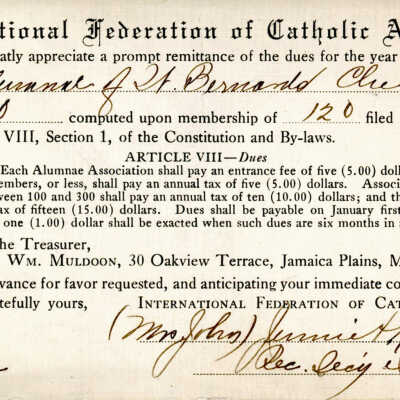 tional Federation of Catholic A
atly appreciate a prompt remittance of the dues for the year
lumnae of St. Bernards
0 computed upon membership of 120 filed
VIII, Section 1, of the Constitution and By-laws.
ARTICLE VIII—Dues
Each Alumnae Association shall pay an entrance fee of five (5.00) doll
embers, or less, shall pay an annual tax of five (5.00) dollars. Associ
ween 100 and 300 shall pay an annual tax of ten (10.00) dollars; and th
ax of fifteen (15.00) dollars. Dues shall be payable on January first
one (1.00) dollar shall be exacted when such dues are six months in a
he Treasurer,
WM. MULDOON, 30 Oakview Terrace, Jamaica Plains, M
vance for favor requested, and anticipating your immediate co
tefully yours, INTERNATIONAL FEDERATION OF CAT
(Mrs John) Jennie
Rec. Sec'y